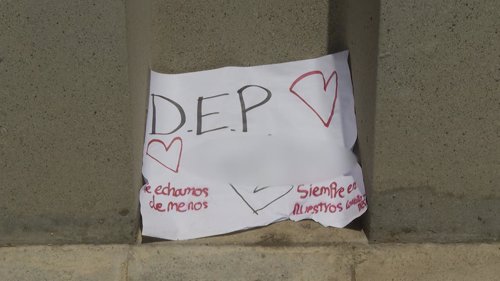 D.E.P
echamos
de menos
Siempre en
nuestros